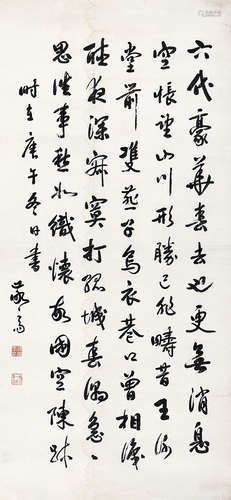 六代豪華春去也更無消息
空悵望山川形勝已非疇昔王謝
堂前雙燕子烏衣巷口曾相識
聽夜深寂寞打孤城春潮急
思往事愁如織懷故國空陳跡
時在庚午冬日書